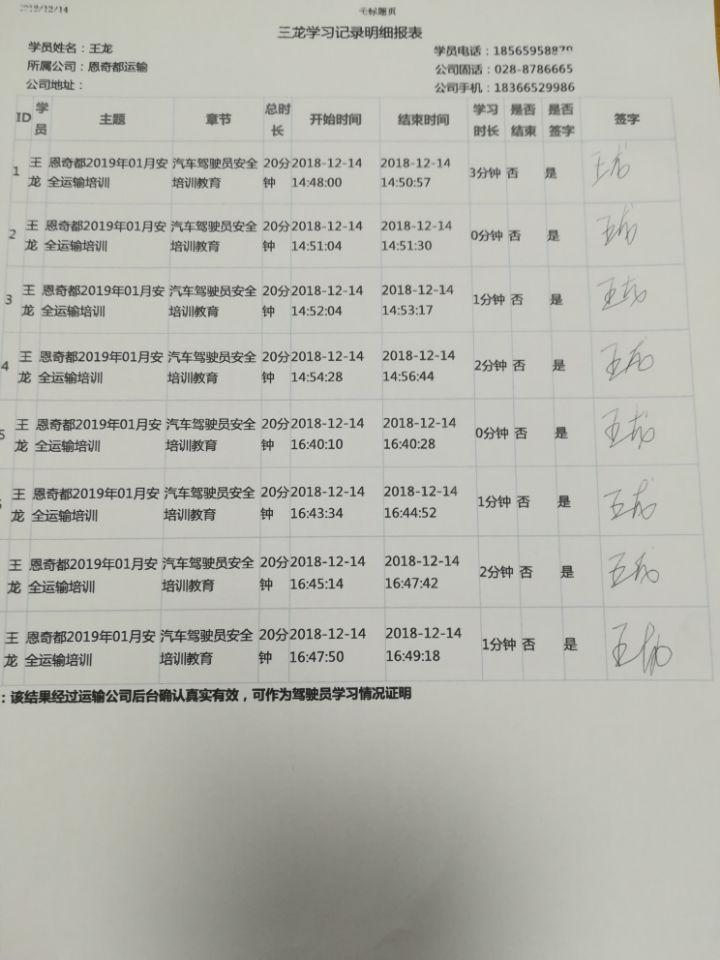 2018/12/14 无标题页
三龙学习记录明细报表
学员姓名：王龙 学员电话：18565958870
所属公司：恩奇都运输 公司固话：028-8786665
公司地址： 公司手机：18366529986
ID 学员 主题 章节 总时长 开始时间 结束时间 学习时长 是否结束 是否签字 签字
1 王 恩奇都2019年01月安 汽车驾驶员安全 20分 2018-12-14 2018-12-14 3分钟 否 是 王龙
龙 全运输培训 培训教育 钟 14:48:00 14:50:57
2 王 恩奇都2019年01月安 汽车驾驶员安全 20分 2018-12-14 2018-12-14 0分钟 否 是 王龙
龙 全运输培训 培训教育 钟 14:51:04 14:51:30
3 王 恩奇都2019年01月安 汽车驾驶员安全 20分 2018-12-14 2018-12-14 1分钟 否 是 王龙
龙 全运输培训 培训教育 钟 14:52:04 14:53:17
4 王 恩奇都2019年01月安 汽车驾驶员安全 20分 2018-12-14 2018-12-14 2分钟 否 是 王龙
龙 全运输培训 培训教育 钟 14:54:28 14:56:44
5 王 恩奇都2019年01月安 汽车驾驶员安全 20分 2018-12-14 2018-12-14 0分钟 否 是 王龙
龙 全运输培训 培训教育 钟 16:40:10 16:40:28
王 恩奇都2019年01月安 汽车驾驶员安全 20分 2018-12-14 2018-12-14 1分钟 否 是 王龙
龙 全运输培训 培训教育 钟 16:43:34 16:44:52
王 恩奇都2019年01月安 汽车驾驶员安全 20分 2018-12-14 2018-12-14 2分钟 否 是 王龙
龙 全运输培训 培训教育 钟 16:45:14 16:47:42
王 恩奇都2019年01月安 汽车驾驶员安全 20分 2018-12-14 2018-12-14 1分钟 否 是 王龙
龙 全运输培训 培训教育 钟 16:47:50 16:49:18
：该结果经过运输公司后台确认真实有效，可作为驾驶员学习情况证明